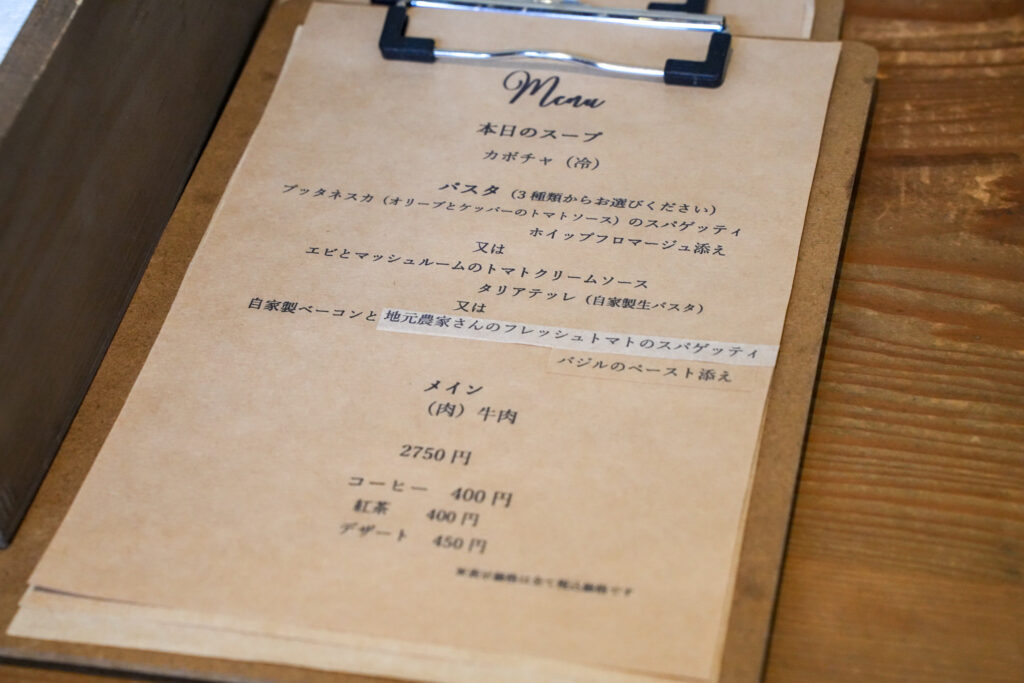 Menu
本日のスープ
カボチャ（冷）
パスタ（3種類からお選びください）
プッタネスカ（オリーブとケッパーのトマトソース）のスパゲッティ
ホイップフロマージュ添え
又は
エビとマッシュルームのトマトクリームソース
タリアテッレ（自家製生パスタ）
又は
自家製ベーコンと地元農家さんのフレッシュトマトのスパゲッティ
バジルのペースト添え
メイン
（肉）牛肉
2750円
コーヒー 400円
紅茶 400円
デザート 450円
※表示価格は全て税込価格です